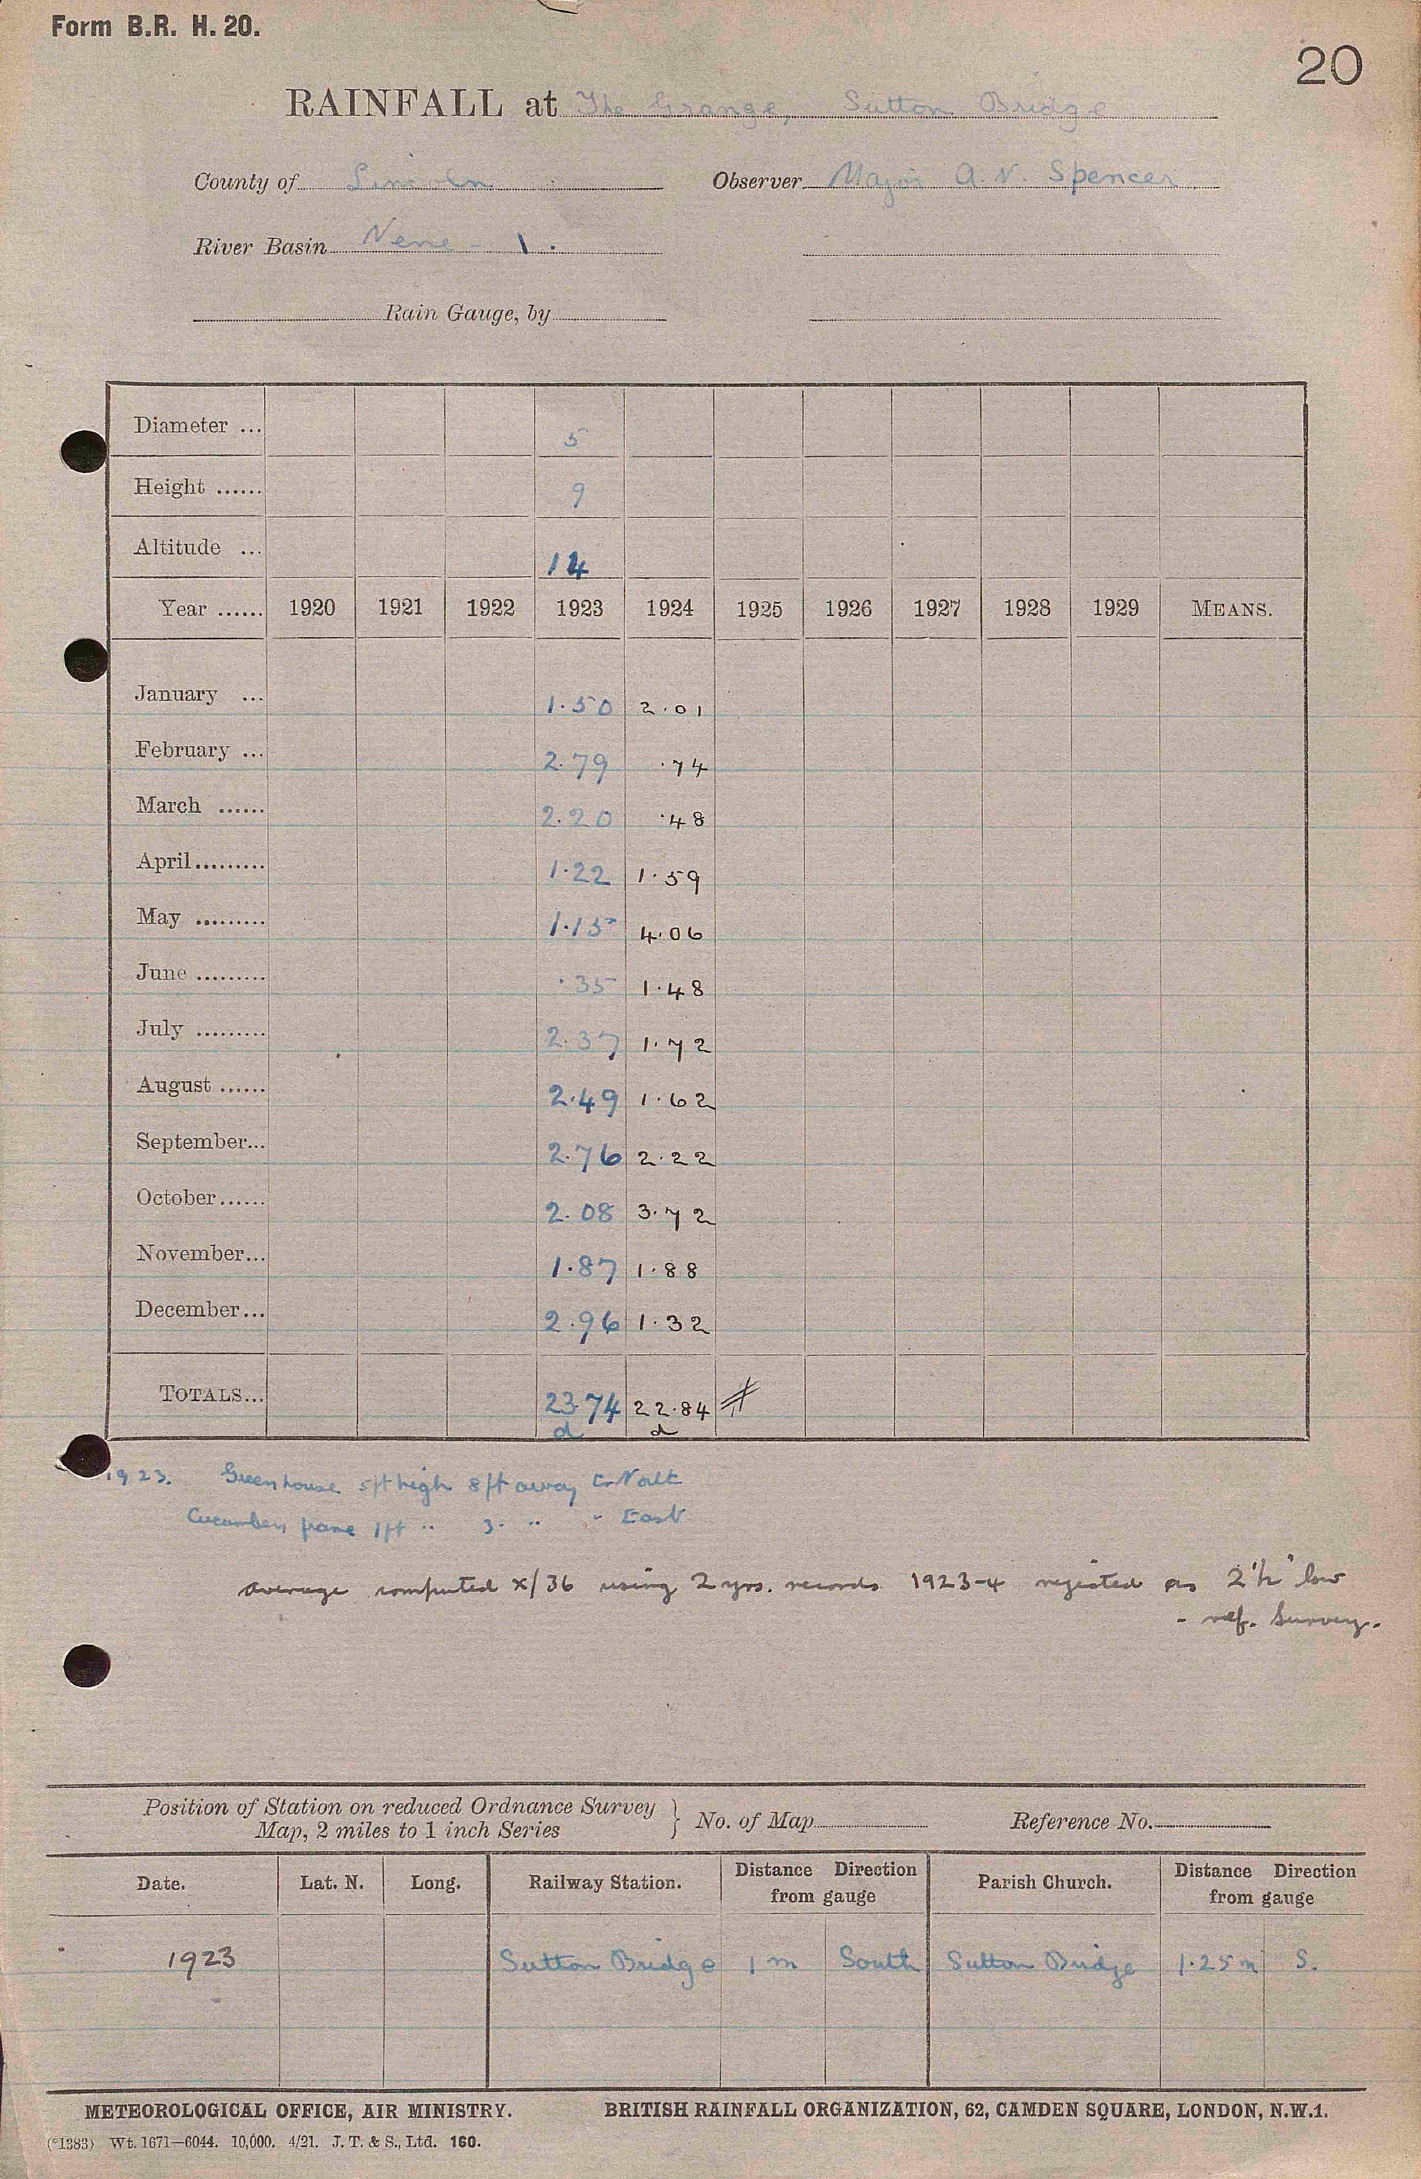 Form B.R. H. 20.
20
RAINFALL at The Grange, Sutton Bridge
County of Lincoln Observer Major A. V. Spencer
River Basin Nene - 1.
Rain Gauge, by
Diameter ... 5
Height ...... 9
Altitude ... 14
Year ...... 1920 1921 1922 1923 1924 1925 1926 1927 1928 1929 MEANS.
January ... 1.50 2.01
February ... 2.79 .74
March ...... 2.20 .48
April......... 1.22 1.59
May ......... 1.15 4.06
June ......... .35 1.48
July ......... 2.37 1.72
August ...... 2.49 1.62
September... 2.76 2.22
October...... 2.08 3.72
November... 1.87 1.88
December... 2.96 1.32
TOTALS... 23.74 22.84 #
d d
1923. Greenhouse 5ft high 8ft away to North
Cucumber frame 1ft " 3 " " East
average computed x/36 using 2 yrs. records 1923-4 rejected as 2"½" low
- ref. Survey.
Position of Station on reduced Ordnance Survey Map, 2 miles to 1 inch Series } No. of Map Reference No.
Date. Lat. N. Long. Railway Station. Distance Direction from gauge Parish Church. Distance Direction from gauge
1923 Sutton Bridge 1 m South Sutton Bridge 1.25 m S.
METEOROLOGICAL OFFICE, AIR MINISTRY. BRITISH RAINFALL ORGANIZATION, 62, CAMDEN SQUARE, LONDON, N.W.1.
(*1383) Wt. 1671—6044. 10,000. 4/21. J. T. & S., Ltd. 160.